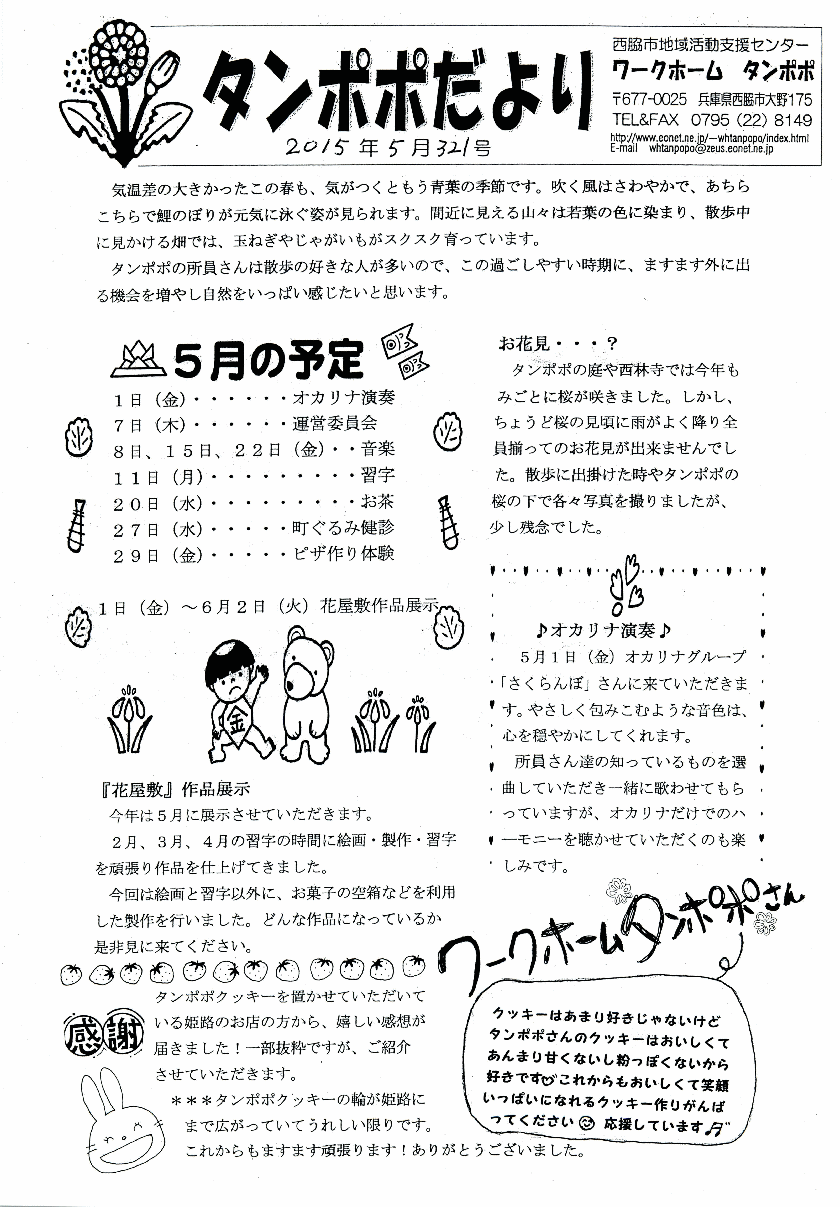 タンポポだより
2015年5月321号
西脇市地域活動支援センター
ワークホーム タンポポ
〒677-0025 兵庫県西脇市大野175
TEL&FAX 0795(22)8149
http://www.eonet.ne.jp/―whtanpopo/index.html
E-mail whtanpopo@zeus.eonet.ne.jp
気温差の大きかったこの春も、気がつくともう青葉の季節です。吹く風はさわやかで、あちら
こちらで鯉のぼりが元気に泳ぐ姿が見られます。間近に見える山々は若葉の色に染まり、散歩中
に見かける畑では、玉ねぎやじゃがいもがスクスク育っています。
タンポポの所員さんは散歩の好きな人が多いので、この過ごしやすい時期に、ますます外に出
る機会を増やし自然をいっぱい感じたいと思います。
5月の予定
1日(金)・・・・・・オカリナ演奏
7日(木)・・・・・・運営委員会
8日、15日、22日(金)・・音楽
11日(月)・・・・・・・・・習字
20日(水)・・・・・・・・・お茶
27日(水)・・・・・町ぐるみ健診
29日(金)・・・・・ピザ作り体験
1日(金)～6月2日(火)花屋敷作品展示
金
『花屋敷』作品展示
今年は5月に展示させていただきます。
2月、3月、4月の習字の時間に絵画・製作・習字
を頑張り作品を仕上げてきました。
今回は絵画と習字以外に、お菓子の空箱などを利用
した製作を行いました。どんな作品になっているか
是非見に来てください。
お花見・・・?
タンポポの庭や西林寺では今年も
みごとに桜が咲きました。しかし、
ちょうど桜の見頃に雨がよく降り全
員揃ってのお花見が出来ませんでし
た。散歩に出掛けた時やタンポポの
桜の下で各々写真を撮りましたが、
少し残念でした。
♪オカリナ演奏♪
5月1日(金)オカリナグループ
「さくらんぼ」さんに来ていただきま
す。やさしく包みこむような音色は、
心を穏やかにしてくれます。
所員さん達の知っているものを選
曲していただき一緒に歌わせてもら
っていますが、オカリナだけでのハ
ーモニーを聴かせていただくのも楽
しみです。
感謝
タンポポクッキーを置かせていただいて
いる姫路のお店の方から、嬉しい感想が
届きました！一部抜粋ですが、ご紹介
させていただきます。
＊＊＊タンポポクッキーの輪が姫路に
まで広がっていてうれしい限りです。
これからもますます頑張ります！ありがとうございました。
ワークホームタンポポさん
クッキーはあまり好きじゃないけど
タンポポさんのクッキーはおいしくて
あんまり甘くないし粉っぽくないから
好きです♡これからもおいしくて笑顔
いっぱいになれるクッキー作りがんば
ってください☺ 応援しています♫